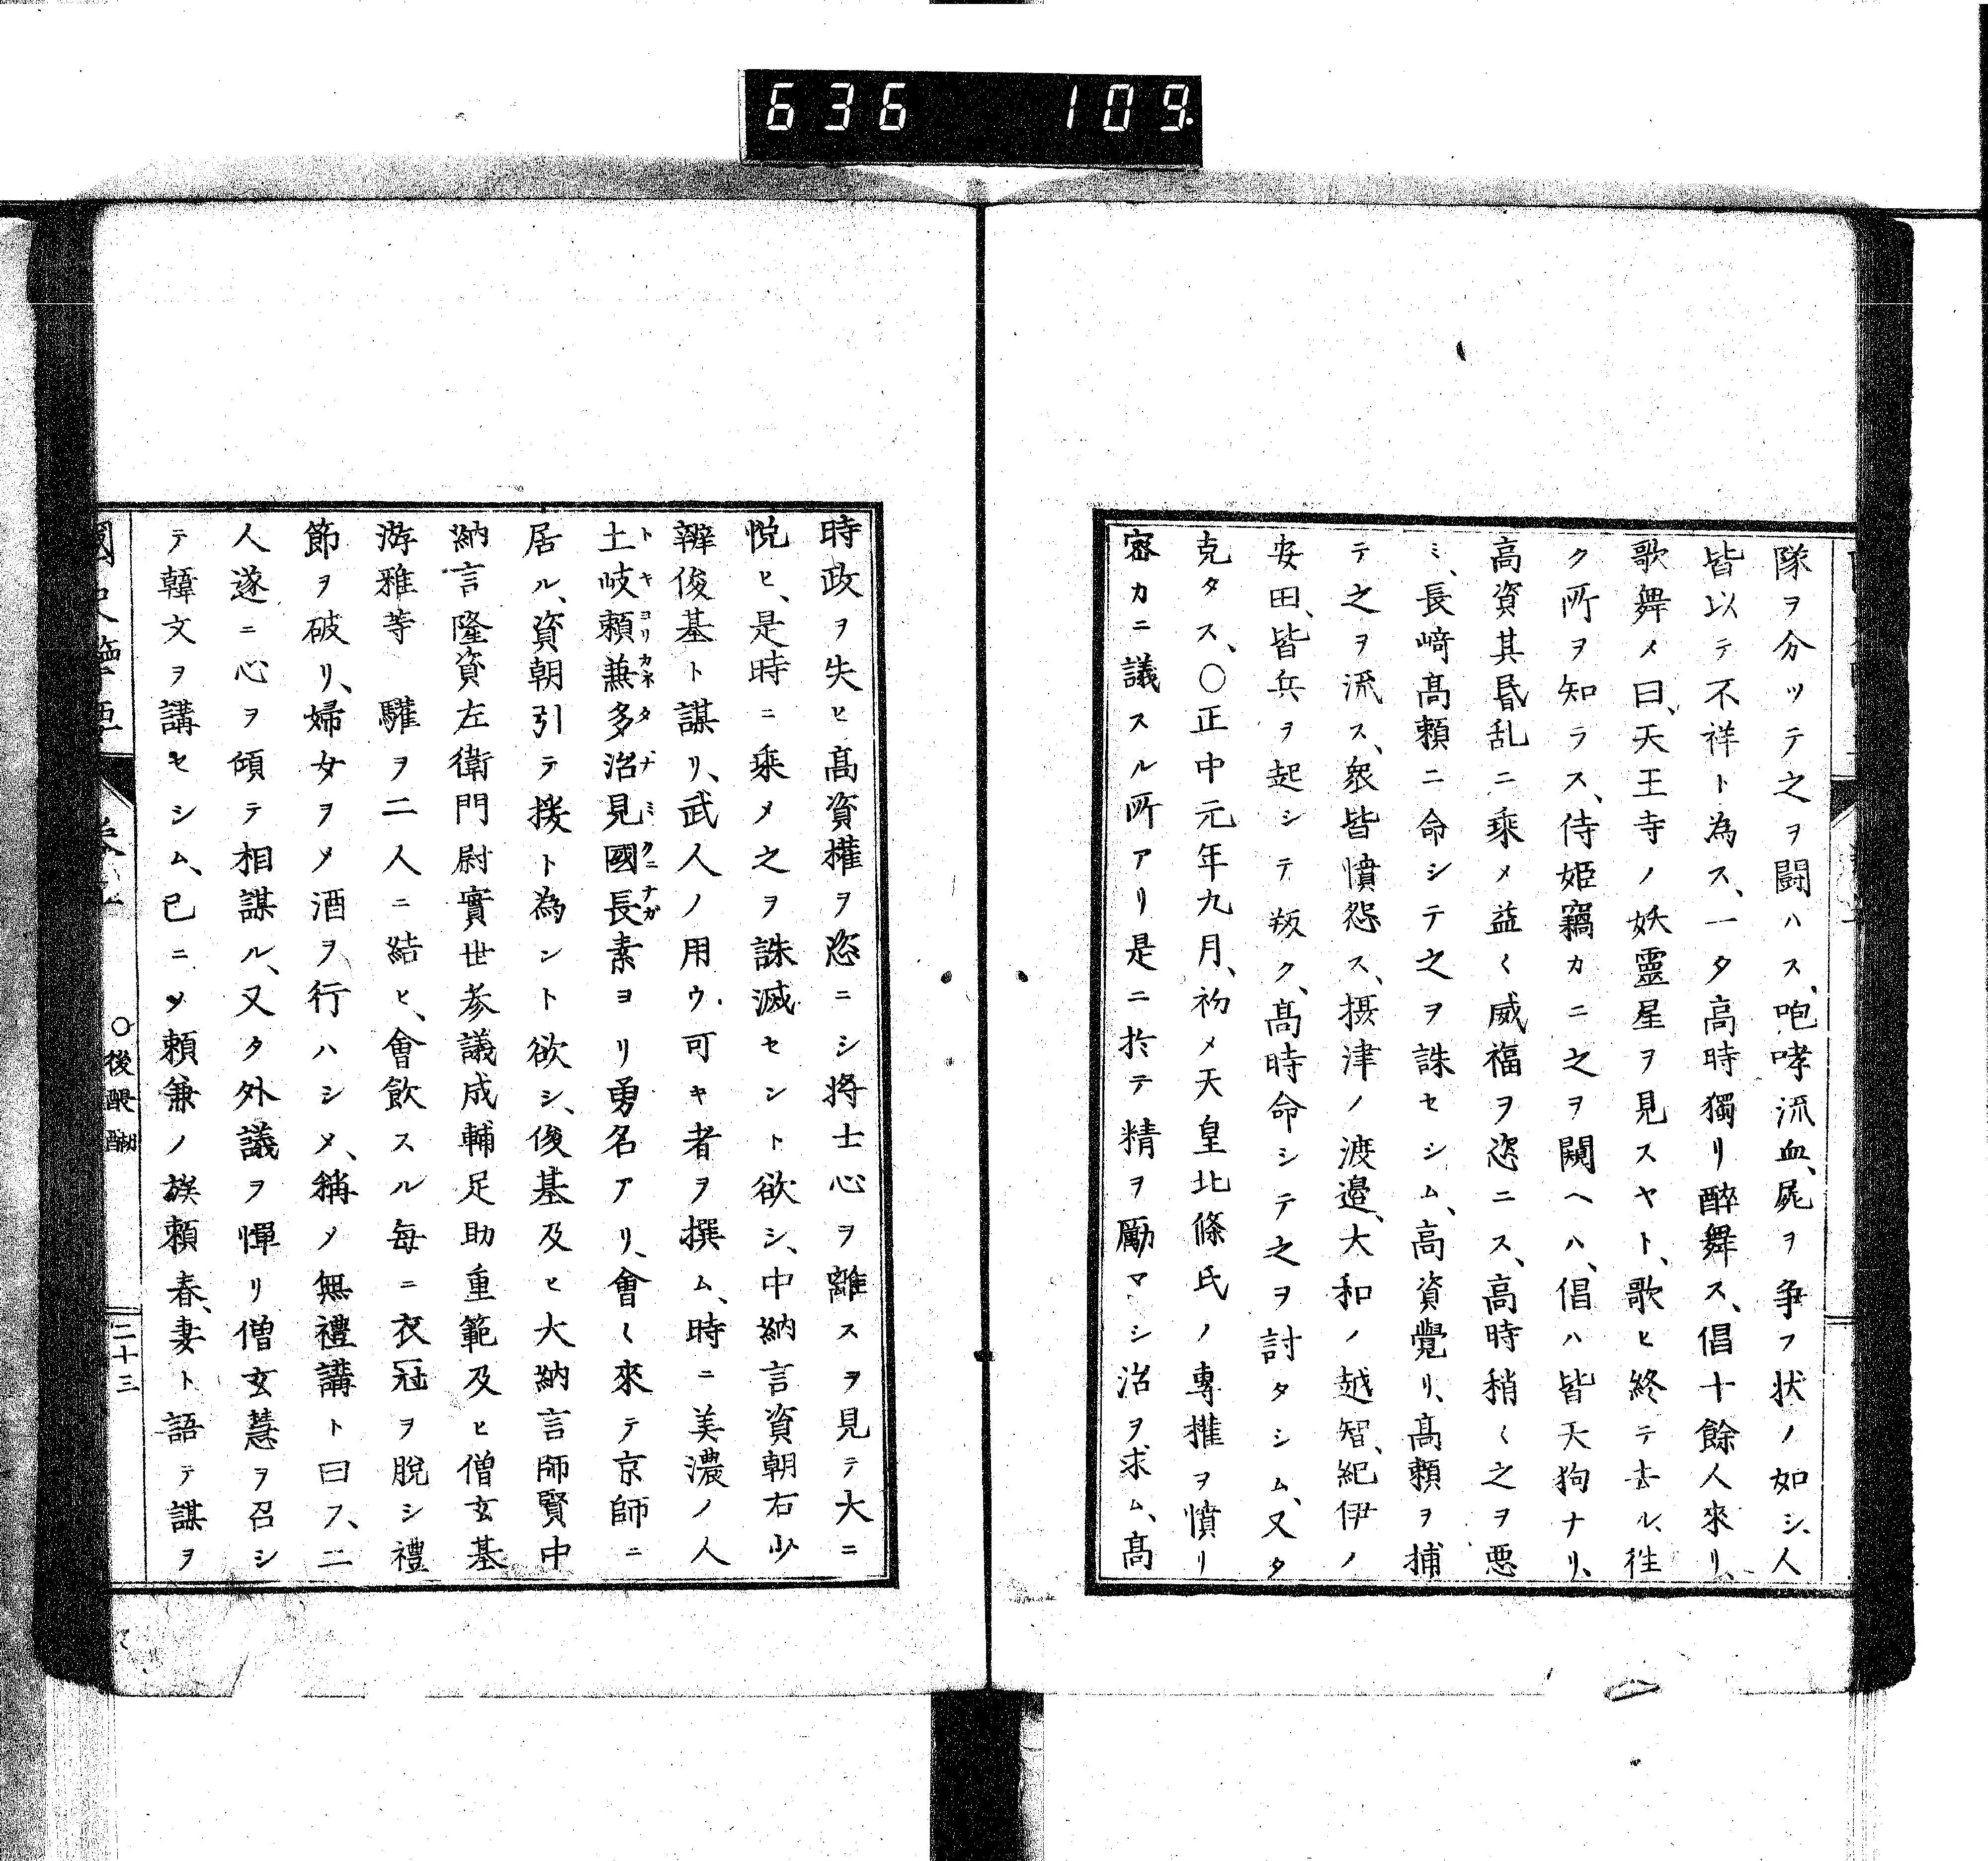 636 109.
隊ヲ分ツテ之ヲ闘ハス、咆哮流血、屍ヲ争フ状ノ如シ、人
皆以テ不祥ト為ス、一夕高時獨リ醉舞ス、倡十餘人來リ、
歌舞メ曰、天王寺ノ妖靈星ヲ見スヤト、歌ヒ終テ去ル、徃
ク所ヲ知ラス、侍姫竊カニ之ヲ闚ヘハ、倡ハ皆天狗ナリ、
高資其昏乱ニ乘メ益〱威福ヲ恣ニス、高時稍〱之ヲ悪
ミ、長﨑髙頼ニ命シテ之ヲ誅セシム、高資覺リ、髙頼ヲ捕
テ之ヲ流ス、衆皆憤怨ス、摂津ノ渡邉、大和ノ越智、紀伊ノ
安田、皆兵ヲ起シテ叛ク、髙時命シテ之ヲ討タシム、又タ
克タス、〇正中元年九月、初メ天皇北條氏ノ專權ヲ憤リ
密カニ議スル所アリ是ニ於テ精ヲ勵マシ治ヲ求ム、髙
時政ヲ失ヒ髙資權ヲ恣ニシ将士心ヲ離スヲ見テ大ニ
悦ヒ、是時ニ乘メ之ヲ誅滅セント欲シ、中納言資朝右少
辨俊基ト謀リ、武人ノ用ウ可キ者ヲ撰ム、時ニ美濃ノ人
土岐頼兼多治見國長素ヨリ勇名アリ、會〱來テ京師ニ
トキヨリカネタヂミクニナガ
居ル、資朝引テ援ト為ント欲シ、俊基及ヒ大納言師賢中
納言隆資左衛門尉實世参議成輔足助重範及ヒ僧玄基
游雅等驩ヲ二人ニ結ヒ、會飲スル毎ニ衣冠ヲ脱シ禮
節ヲ破リ、婦女ヲメ酒ヲ行ハシメ、稱メ無禮講ト曰フ、二
人遂ニ心ヲ傾テ相謀ル、又タ外議ヲ憚リ僧玄慧ヲ召シ
テ韓文ヲ講セシム、已ニメ頼兼ノ族頼春、妻ト語テ謀ヲ
〇後醍醐
二十三